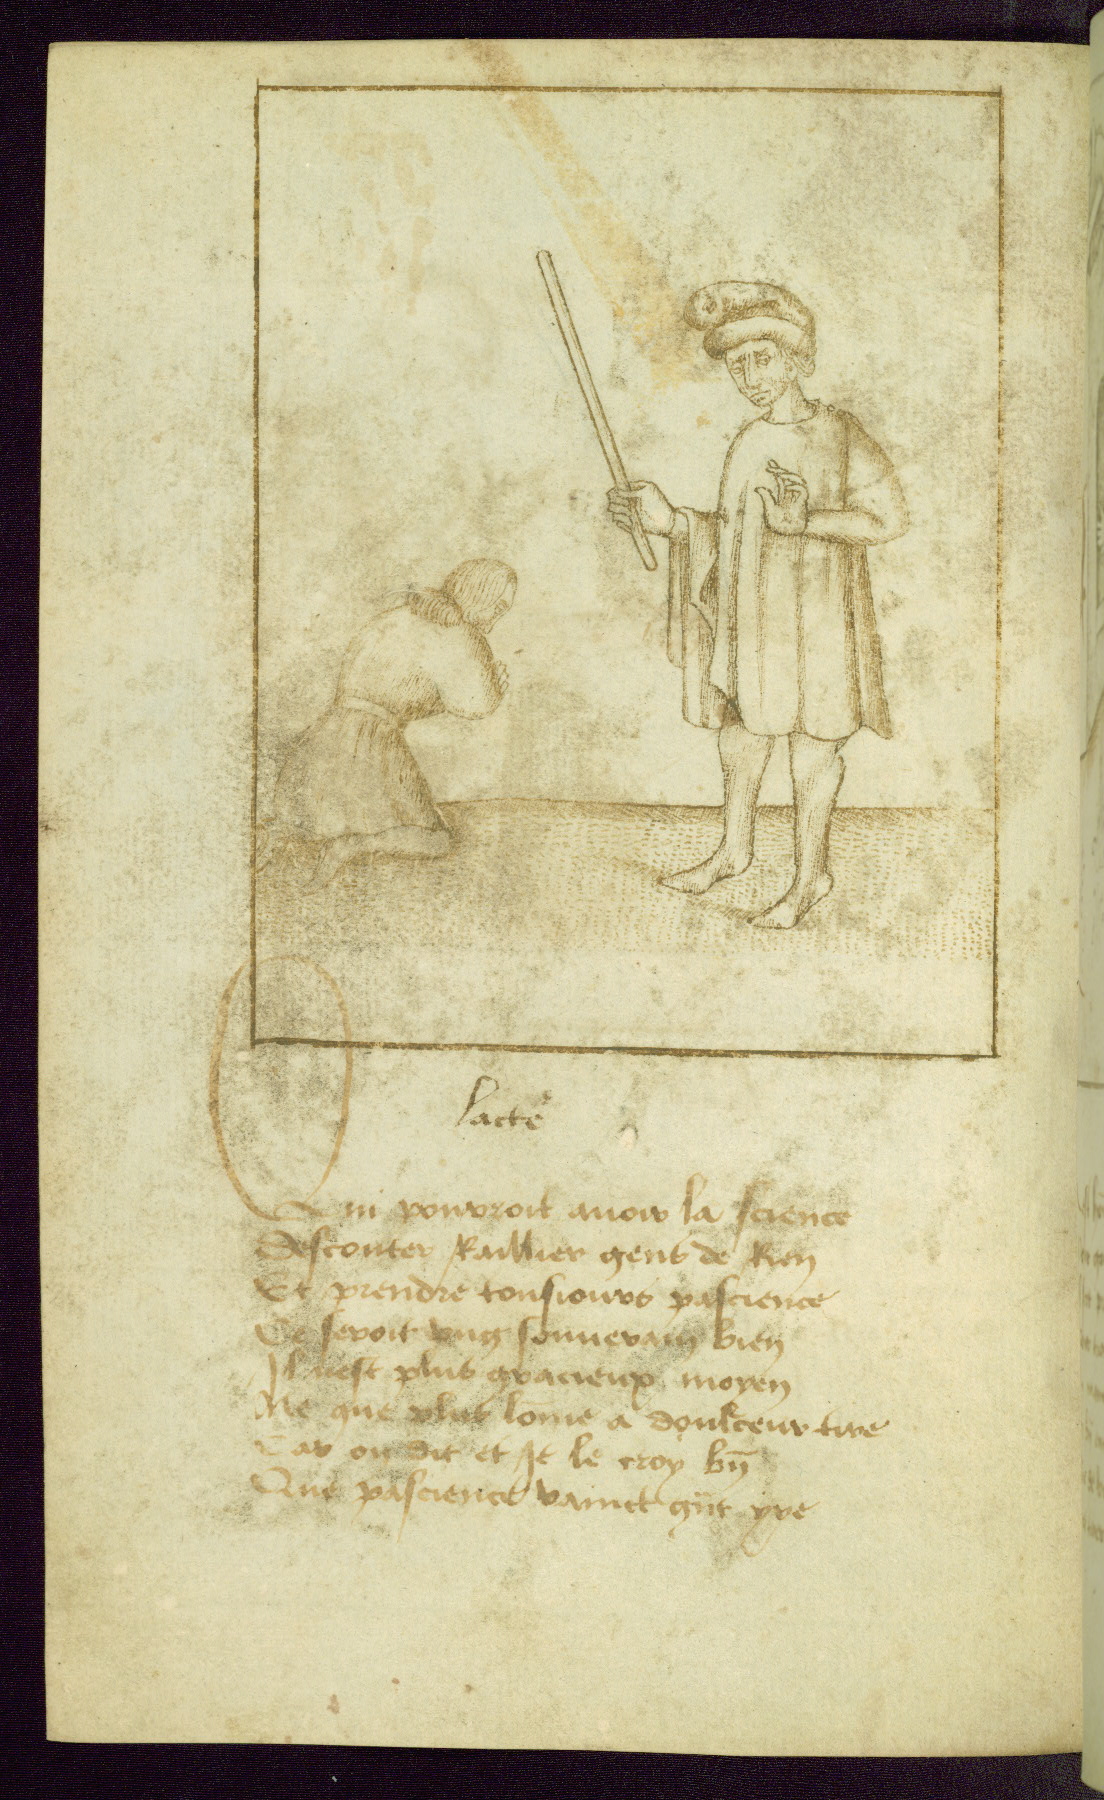 lacte
Qui pourroit auoir la science
Descouter Railller gens de Rien
Et prendre tousiours pascience
Ce seroit ung souuerain bien
Il nest plus gracieux moyen
Ne que plus lome a doulceur tire
Car on dit et Je le croy bn̄
Que pascience vainct gūt yre